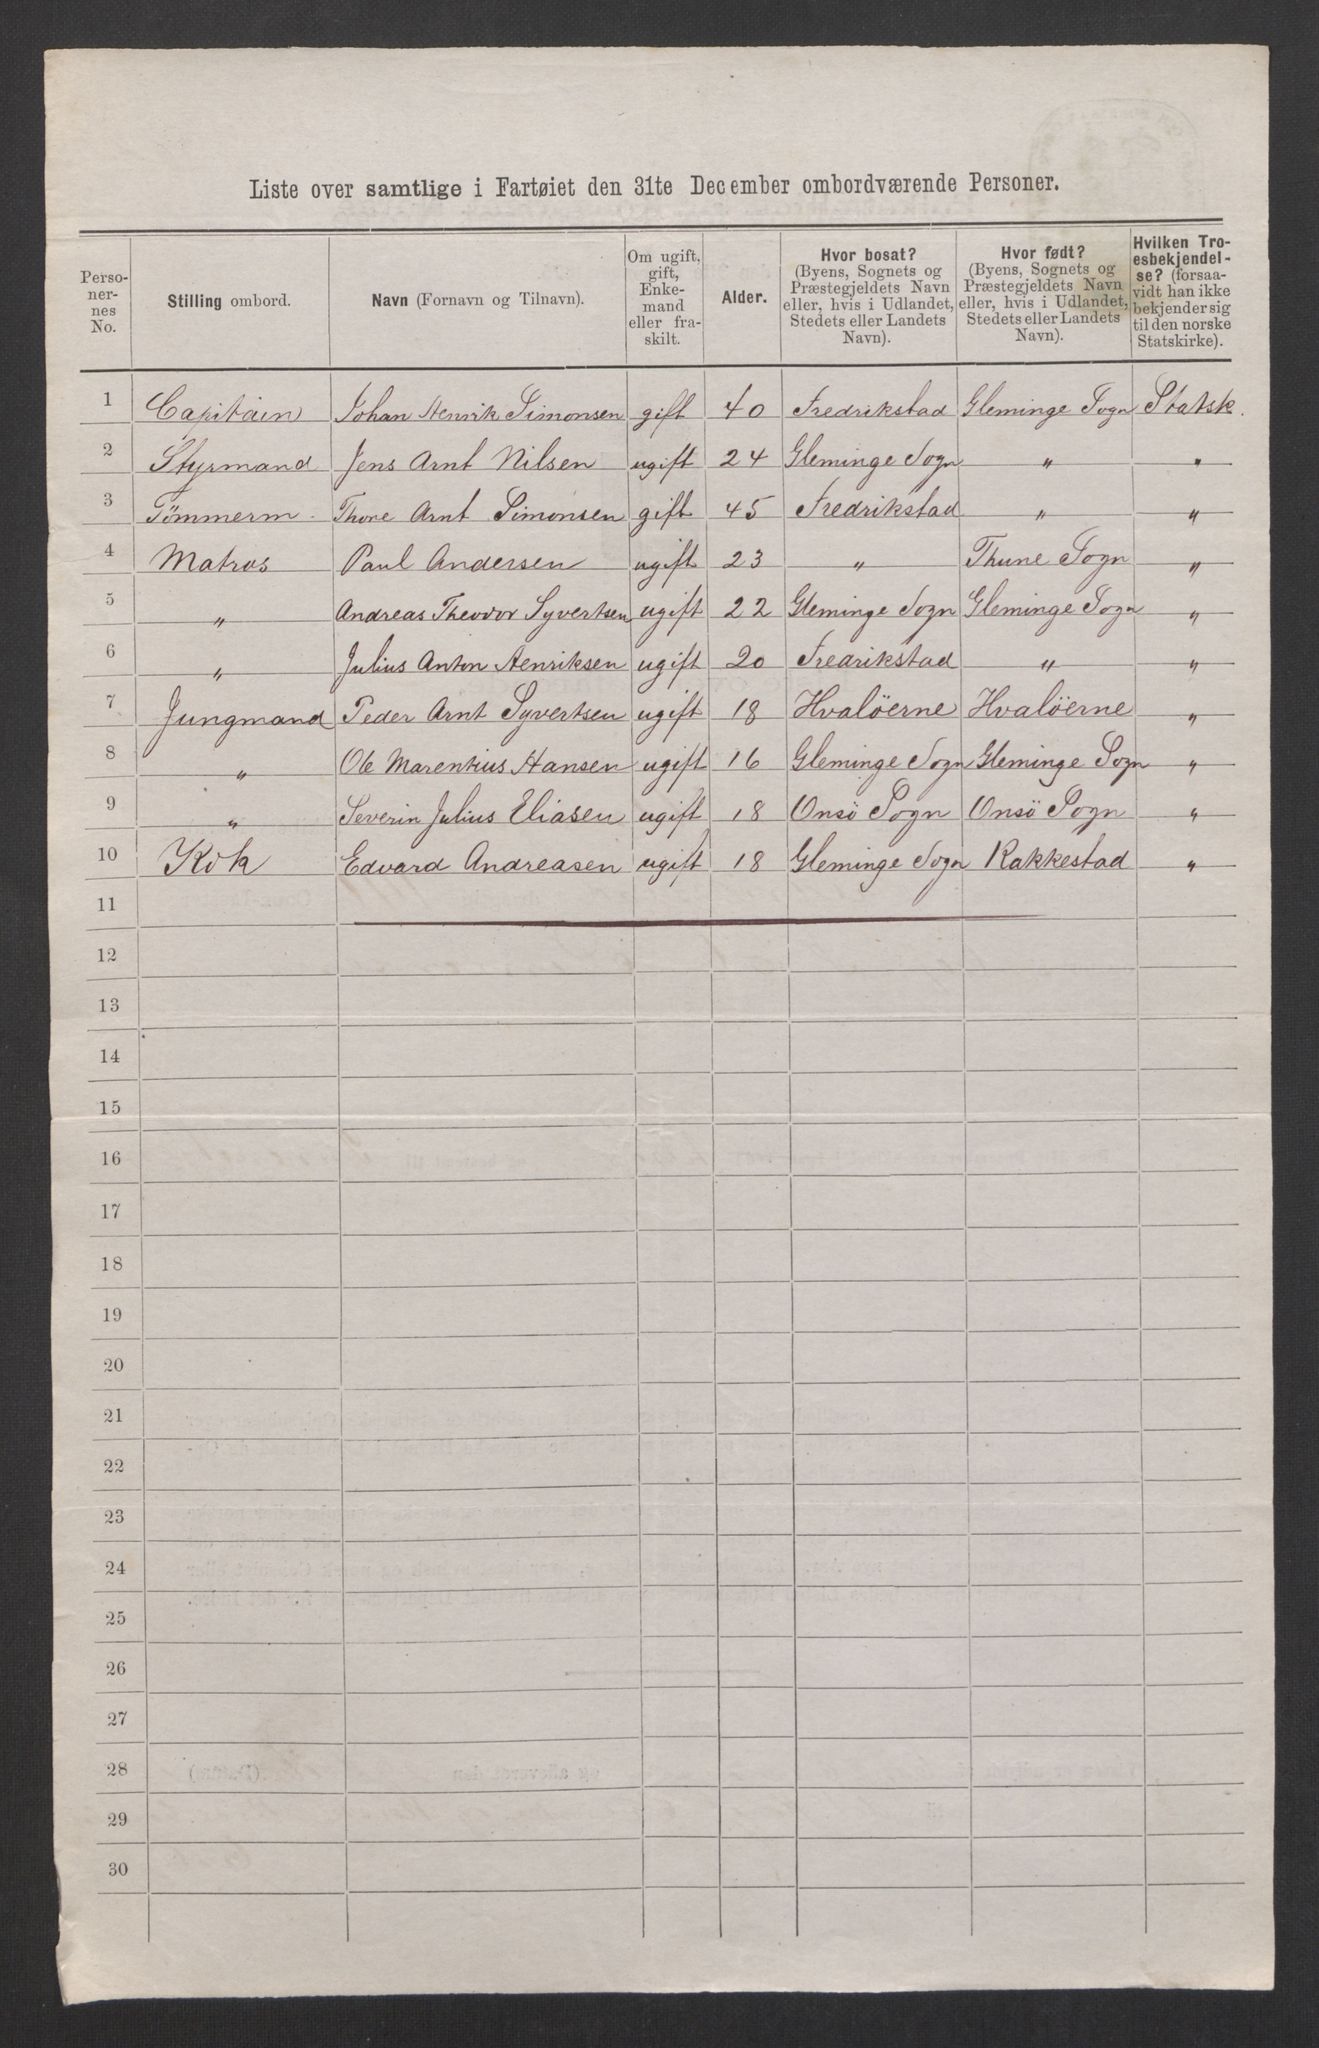 Liste over samtlige i Fartøiet den 31te December ombordværende Personer.
Perso-nernes No. | Stilling ombord. | Navn (Fornavn og Tilnavn). | Om ugift, gift, Enke-mand eller fra-skilt. | Alder. | Hvor bosat? (Byens, Sognets og Præstegjeldets Navn eller, hvis i Udlandet, Stedets eller Landets Navn). | Hvor født? (Byens, Sognets og Præstegjeldets Navn eller, hvis i Udlandet, Stedets eller Landets Navn). | Hvilken Tro-esbekjendel-se? (forsaa-vidt han ikke bekjender sig til den norske Statskirke).
1 Capitäin Johan Henrik Simonsen gift 40 Fredrikstad Gleminge Sogn Statsk.
2 Styrmand Jens Arnt Nilsen ugift 24 Gleminge Sogn " "
3 Tömmerm. Thore Arnt Simonsen gift 45 Fredrikstad " "
4 Matros Paul Andersen ugift 23 " Thune Sogn "
5 " Andreas Theodor Syvertsen ugift 22 Gleminge Sogn Gleminge Sogn "
6 " Julius Anton Henriksen ugift 20 Fredrikstad " "
7 Jungmand Peder Arnt Syvertsen ugift 18 Hvalöerne Hvalöerne "
8 " Ole Marentius Hansen ugift 16 Gleminge Sogn Gleminge Sogn "
9 " Severin Julius Eliasen ugift 18 Onsö Sogn Onsö Sogn "
10 Kok Edvard Andreasen ugift 18 Gleminge Sogn Rakkestad "
11
12
13
14
15
16
17
18
19
20
21
22
23
24
25
26
27
28
29
30